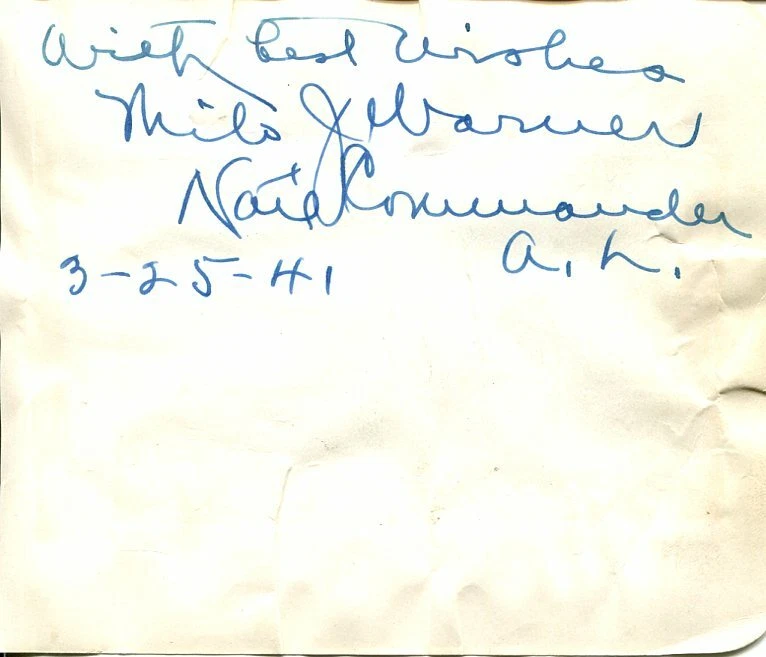 With best wishes
Milo J Warner
Nat'l Commander
A. L.
3-25-41